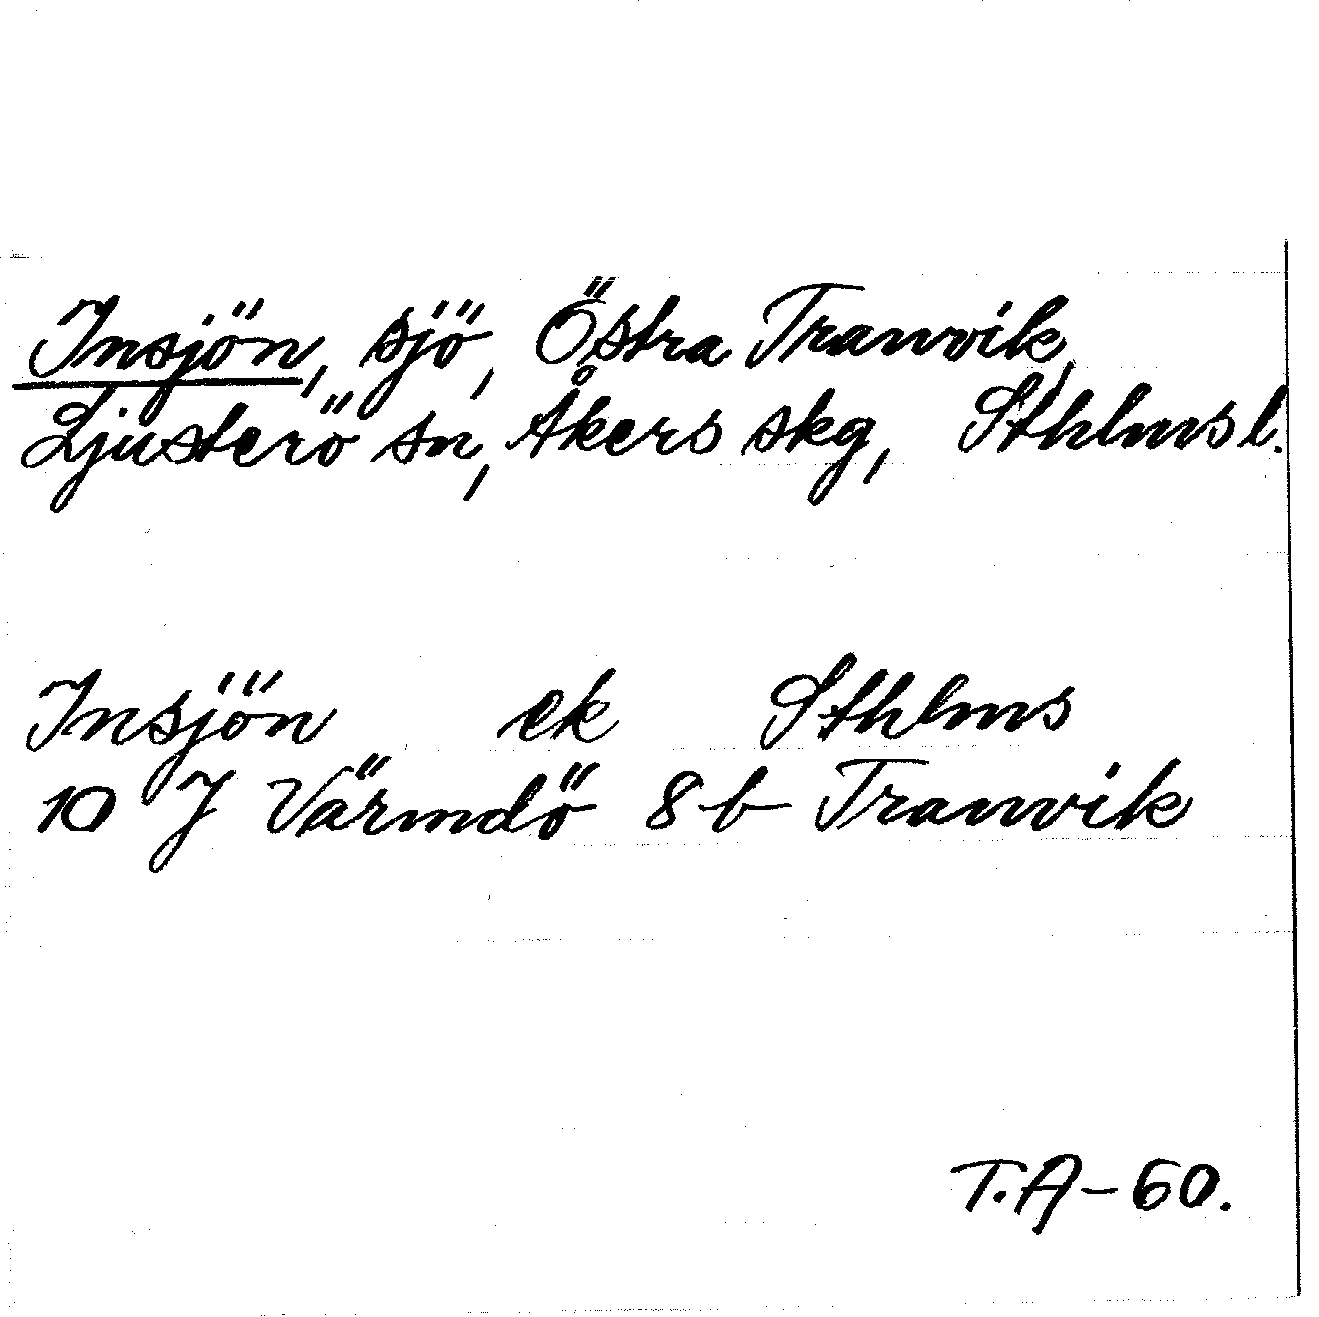 Insjön, sjö, Östra Tranvik,
Ljusterö sn, Åkers skg, Sthlms l.
Insjön ek Sthlms
10 J Värmdö 8 b Tranvik
T.A-60.